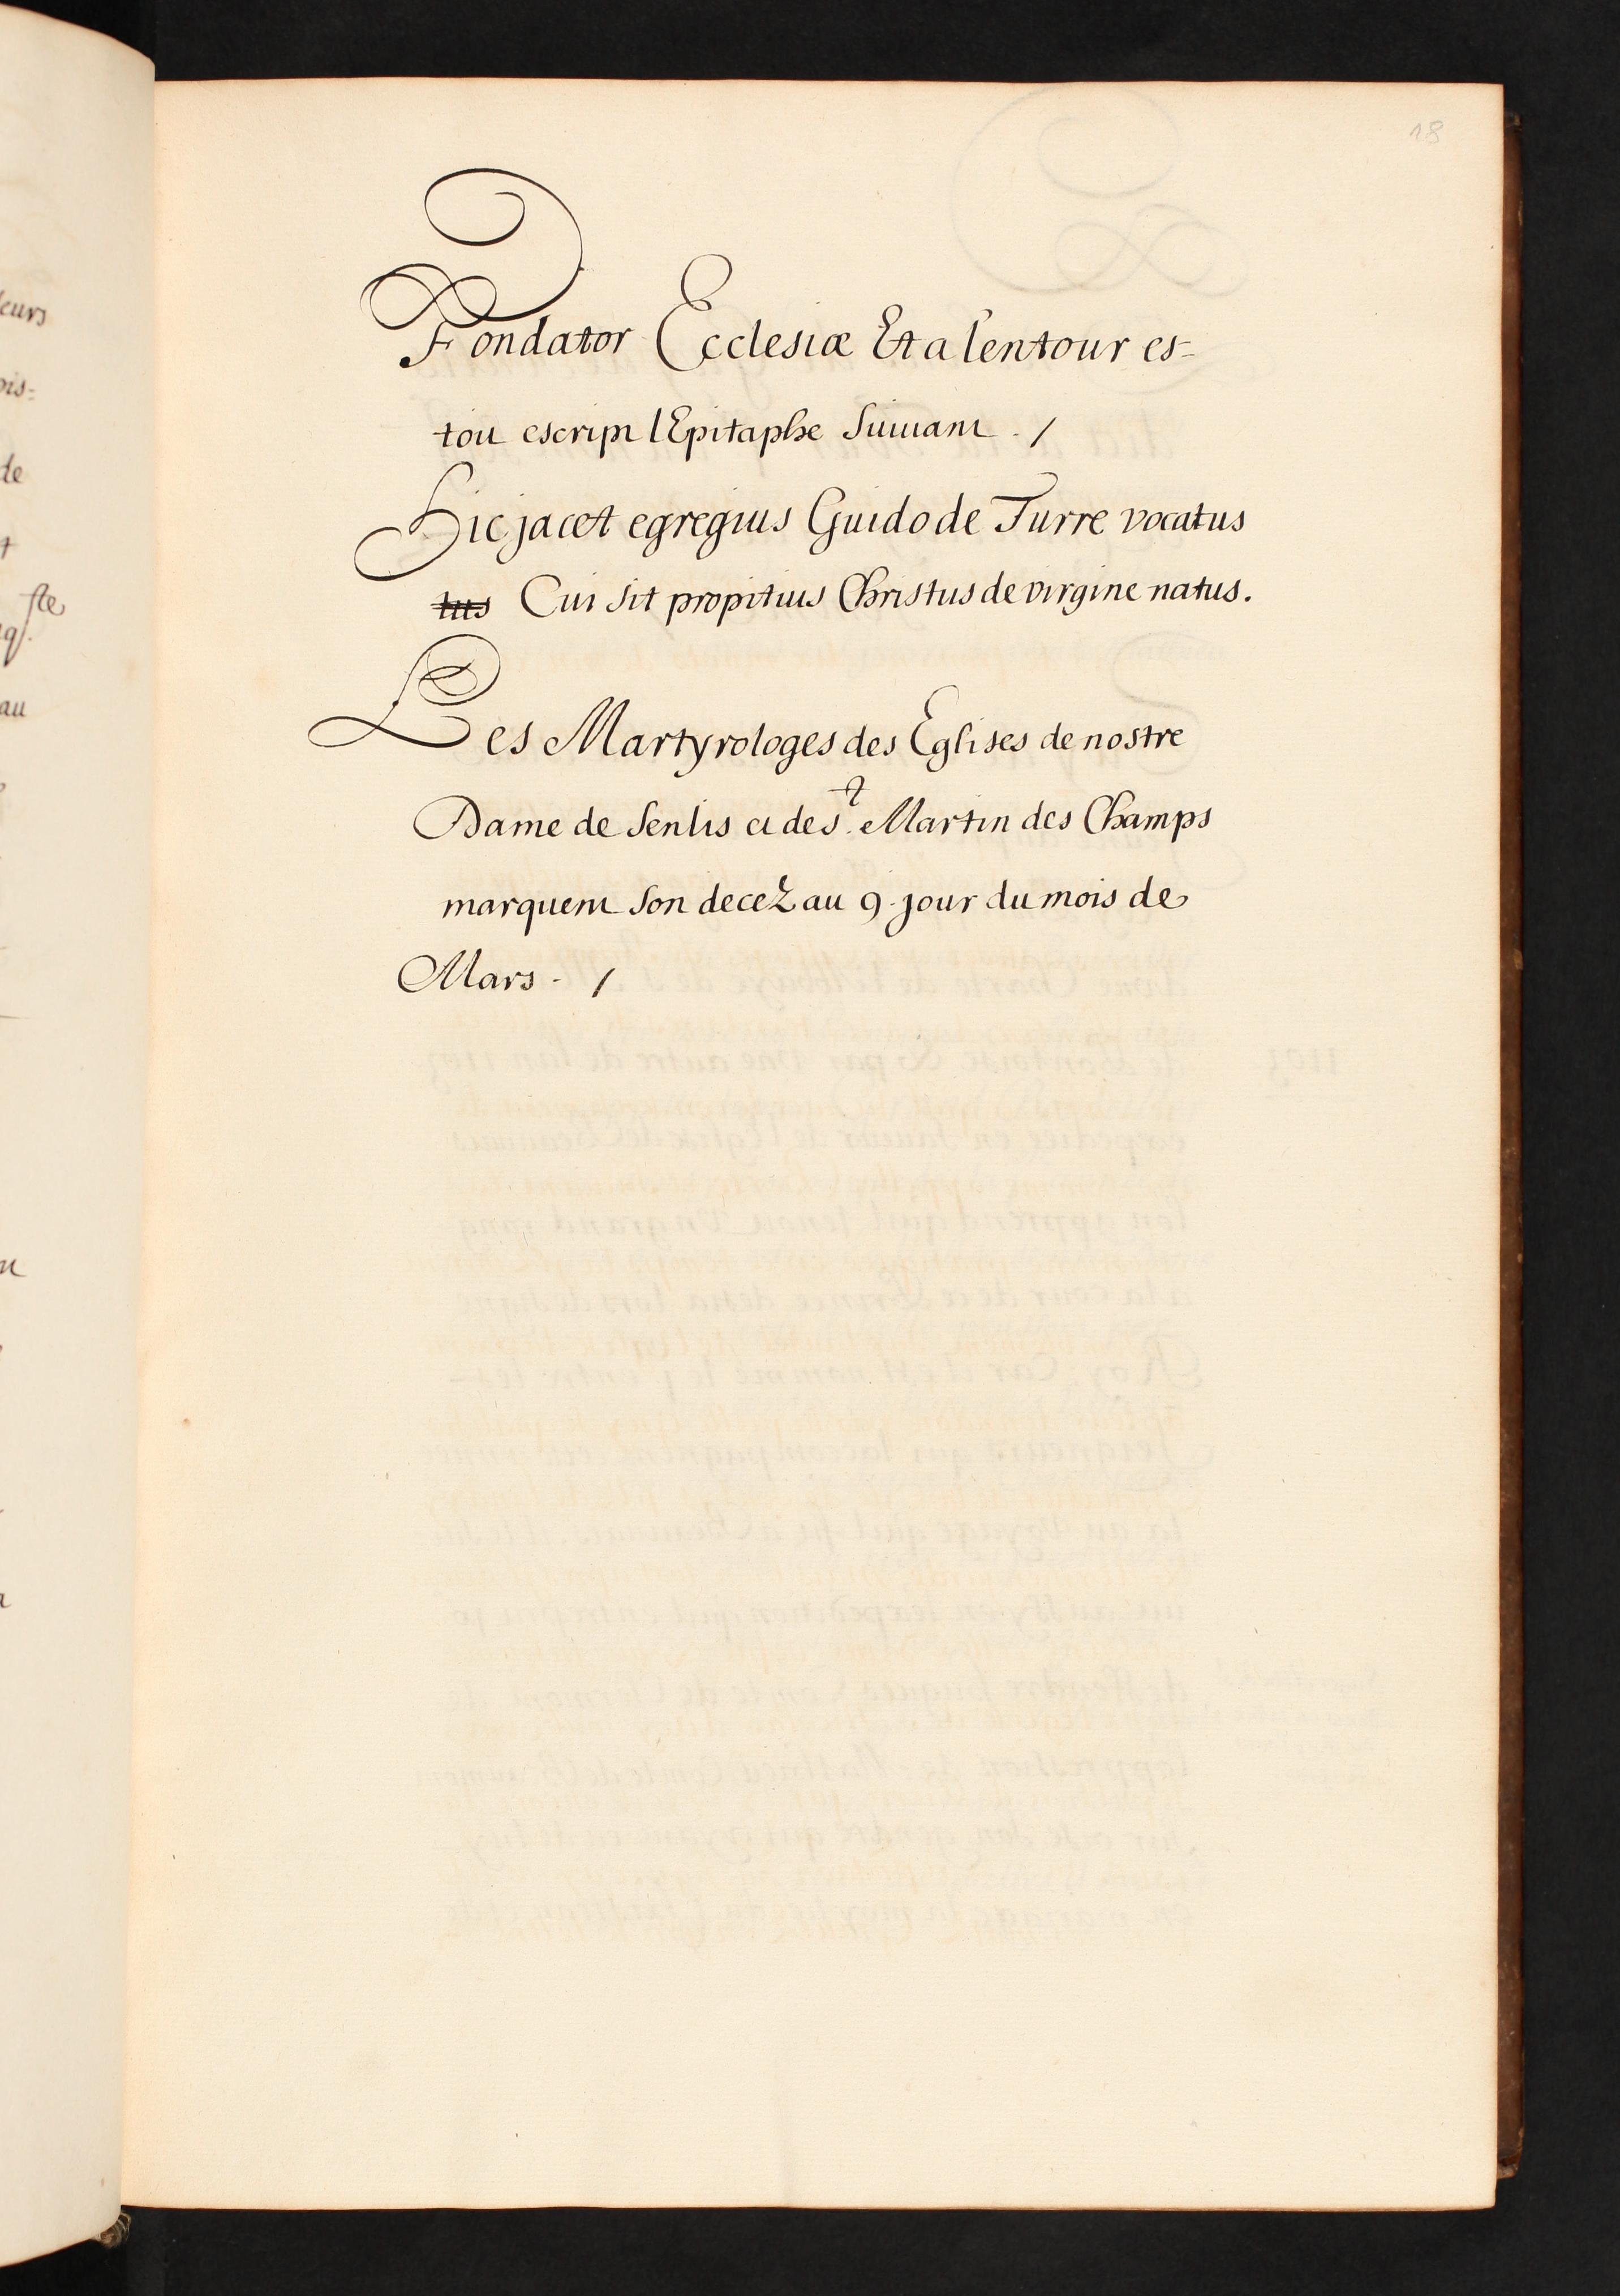 18
Fondator Ecclesiæ Et a lentour es=
toit escript lEpitaphe Suiuant . /
Hic jacet egregius Guido de Turre vocatus
tus Cui sit propitius Christus de virgine natus.
Les Martyrologes des Eglises de nostre
Dame de Senlis et de St. Martin des Champs
marquent Son decez au 9. jour du mois de
Mars . /